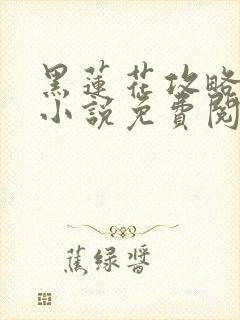 黑蓮花攻略
小說免費閱
蕉绿醬